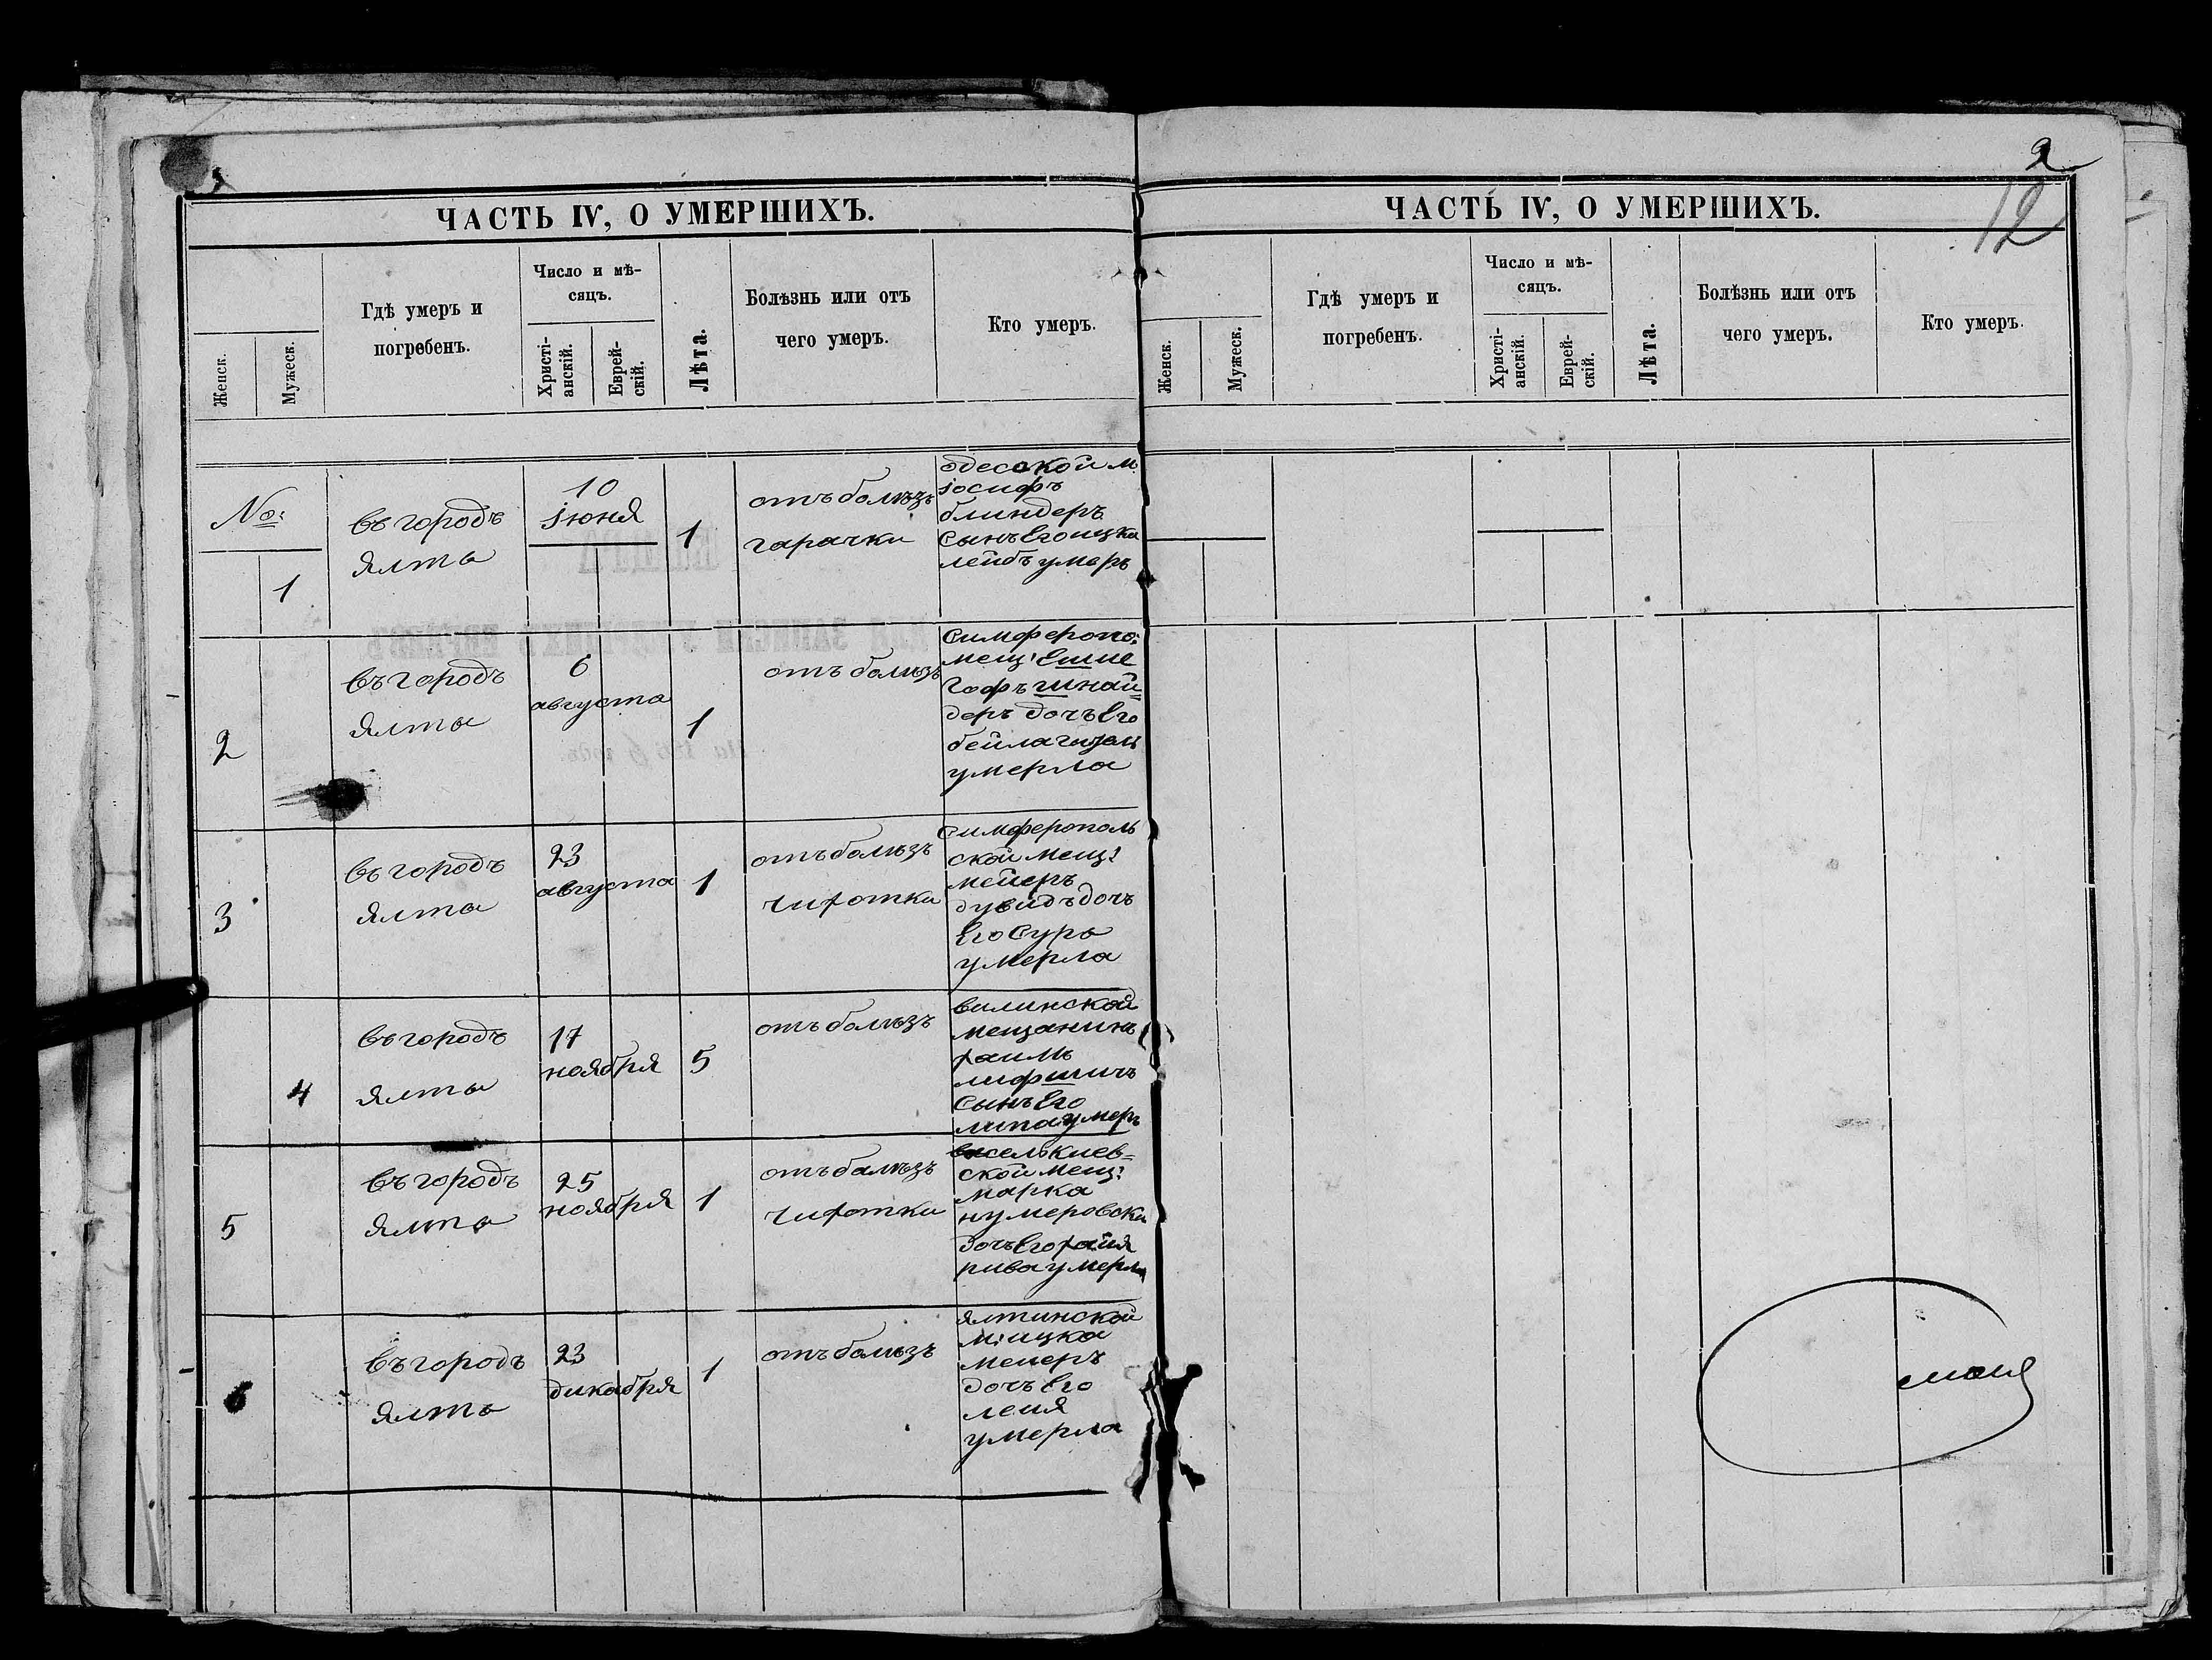 2
12
ЧАСТЬ IV, О УМЕРШИХЪ.
Женск.
Мужеск.
Гдѣ умеръ и
погребенъ.
Число и мѣ-
сяцъ.
Христі-
анскій.
Еврей-
скій.
Лѣта.
Болѣзнь или отъ
чего умеръ.
Кто умеръ.
№:
1
въ городѣ
ялта
10
іюня
1
отъ болѣзъ
гарачки
одесской м
іосифъ
блиндеръ
сынъ Его ицка
лейбъ умеръ
2
въ городѣ
ялта
6
августа
1
отъ болѣзъ
симферопо:
мещ:
Гофъ шнай=
деръ дочъ Его
бейла
умерла
3
въ городѣ
ялта
23
августа
1
отъ болѣзъ
чихотка
симферополь
ской мещ:
мейеръ
дувидъ дочъ
Его Сура
умерла
4
въ городѣ
ялта
17
ноября
5
отъ болѣзъ
вилинской
мещанинъ
хаимъ
лифшичъ
сынъ Его
липа умеръ
5
въ городѣ
ялта
25
ноября
1
отъ болѣзъ
чихотки
киев=
ской мещ:
марка
нумеровски
дочъ Его хайя
рива умерла
6
въ городѣ
ялта
23
дикабря
1
отъ болѣзъ
ялтинской
м: ицка
меиеръ
дочъ Его
лея
умерла
ЧАСТЬ IV, О УМЕРШИХЪ.
Женск.
Мужеск.
Гдѣ умеръ и
погребенъ.
Число и мѣ-
сяцъ.
Христі-
анскій.
Еврей-
скій.
Лѣта.
Болѣзнь или отъ
чего умеръ.
Кто умеръ.